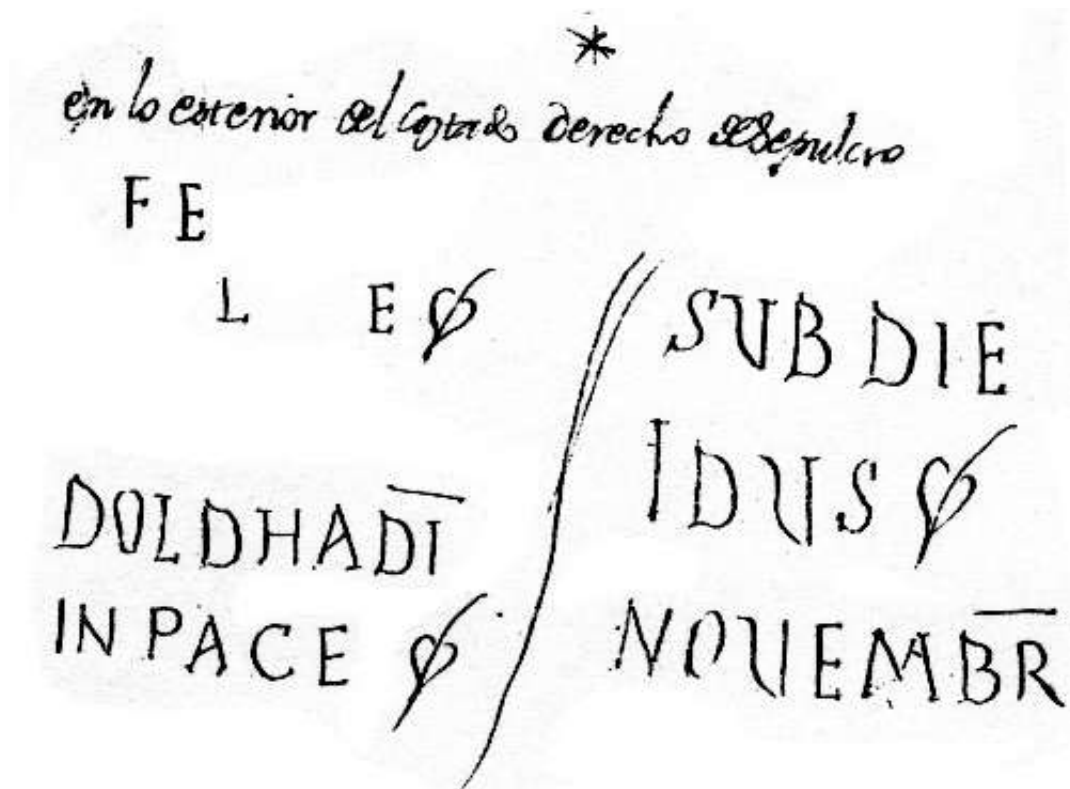 *
en lo exterior del Costado derecho del Sepulcro
F E
L E ❦
DOLDHADI̅
IN PACE ❦
SUB DIE
IDUS ❦
NOUEMB̅R̅